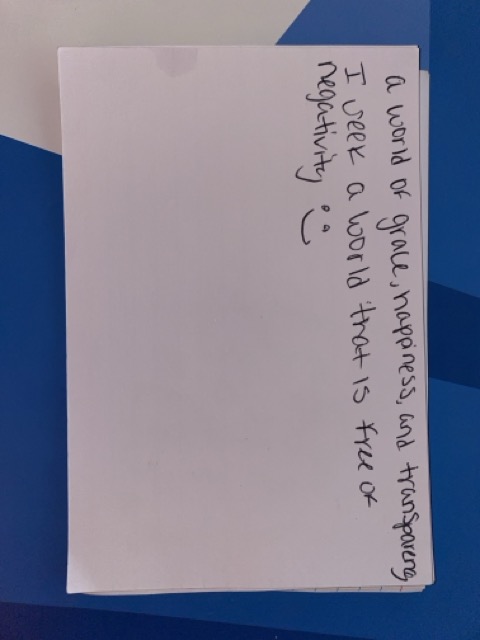 a world of grace, happiness, and transparency
I seek a world that is free of
negativity :)